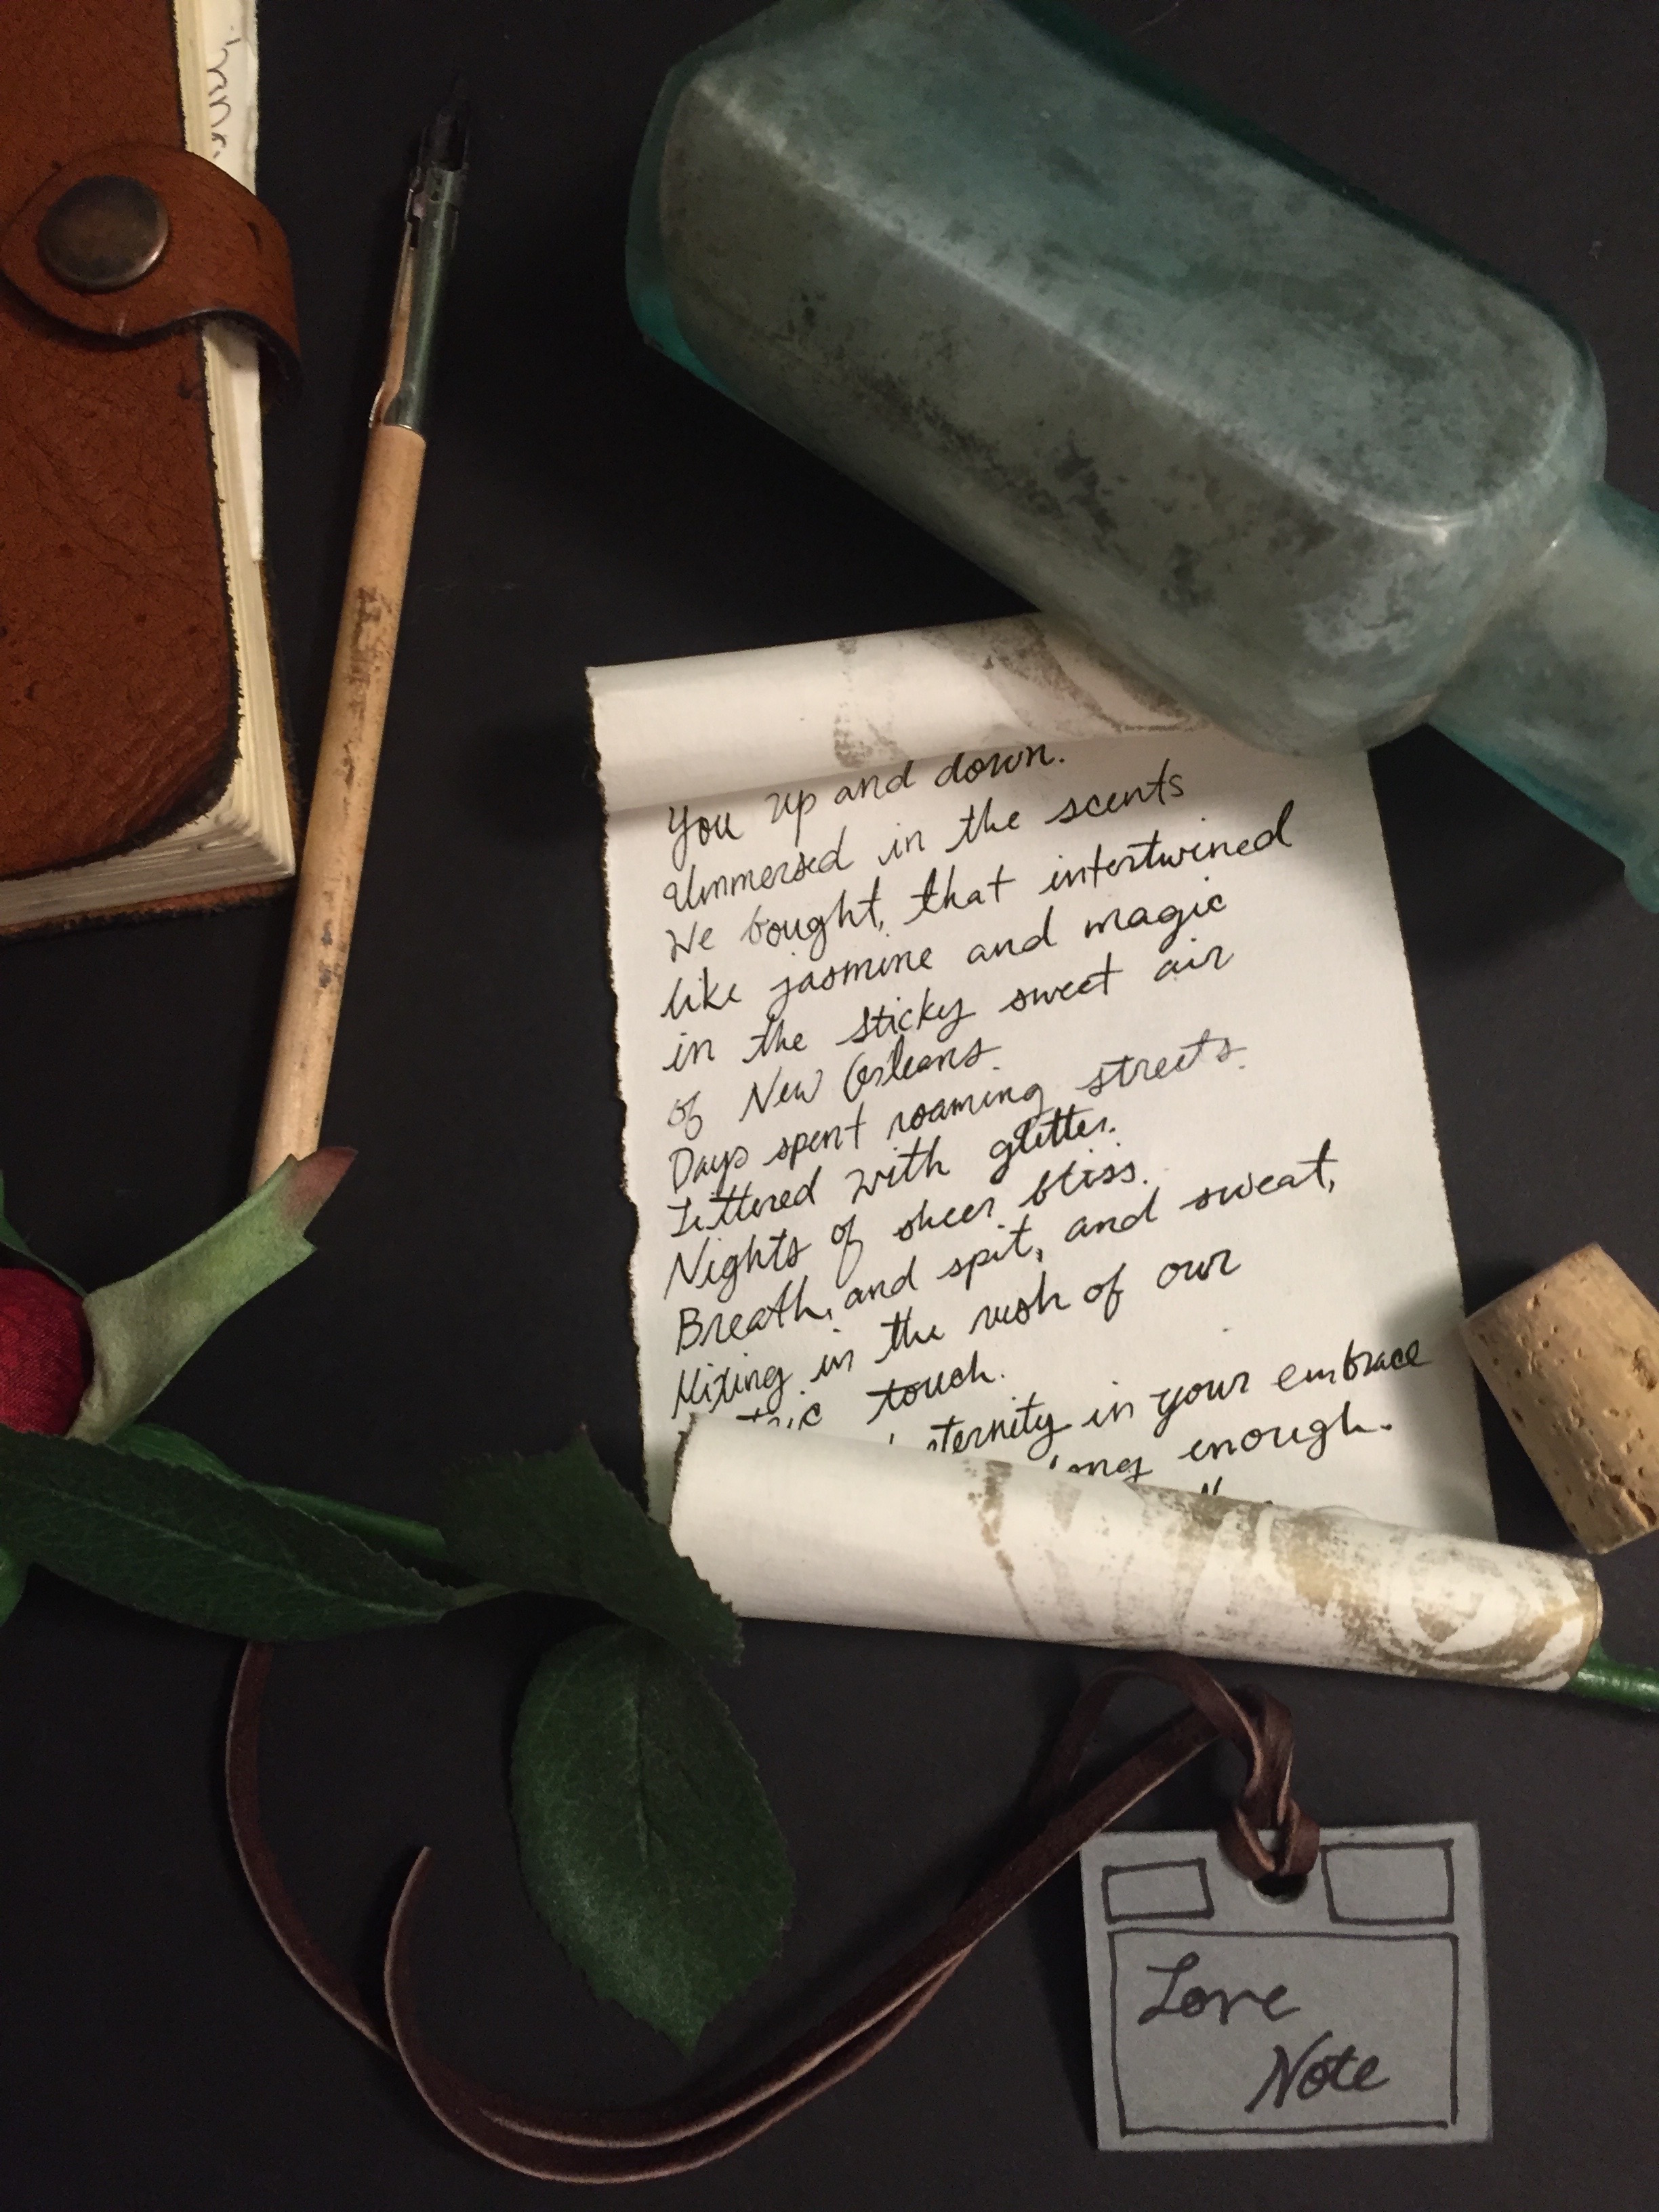 You up and down.
Immersed in the scents
We bought, that intertwined
like jasmine and magic
in the sticky sweet air
of New Orleans.
Days spent roaming streets.
Littered with glitter.
Nights of sheer bliss.
Breath, and spit, and sweat,
Mixing in the rush of our
touch.
eternity in your embrace
long enough.
Love
Note